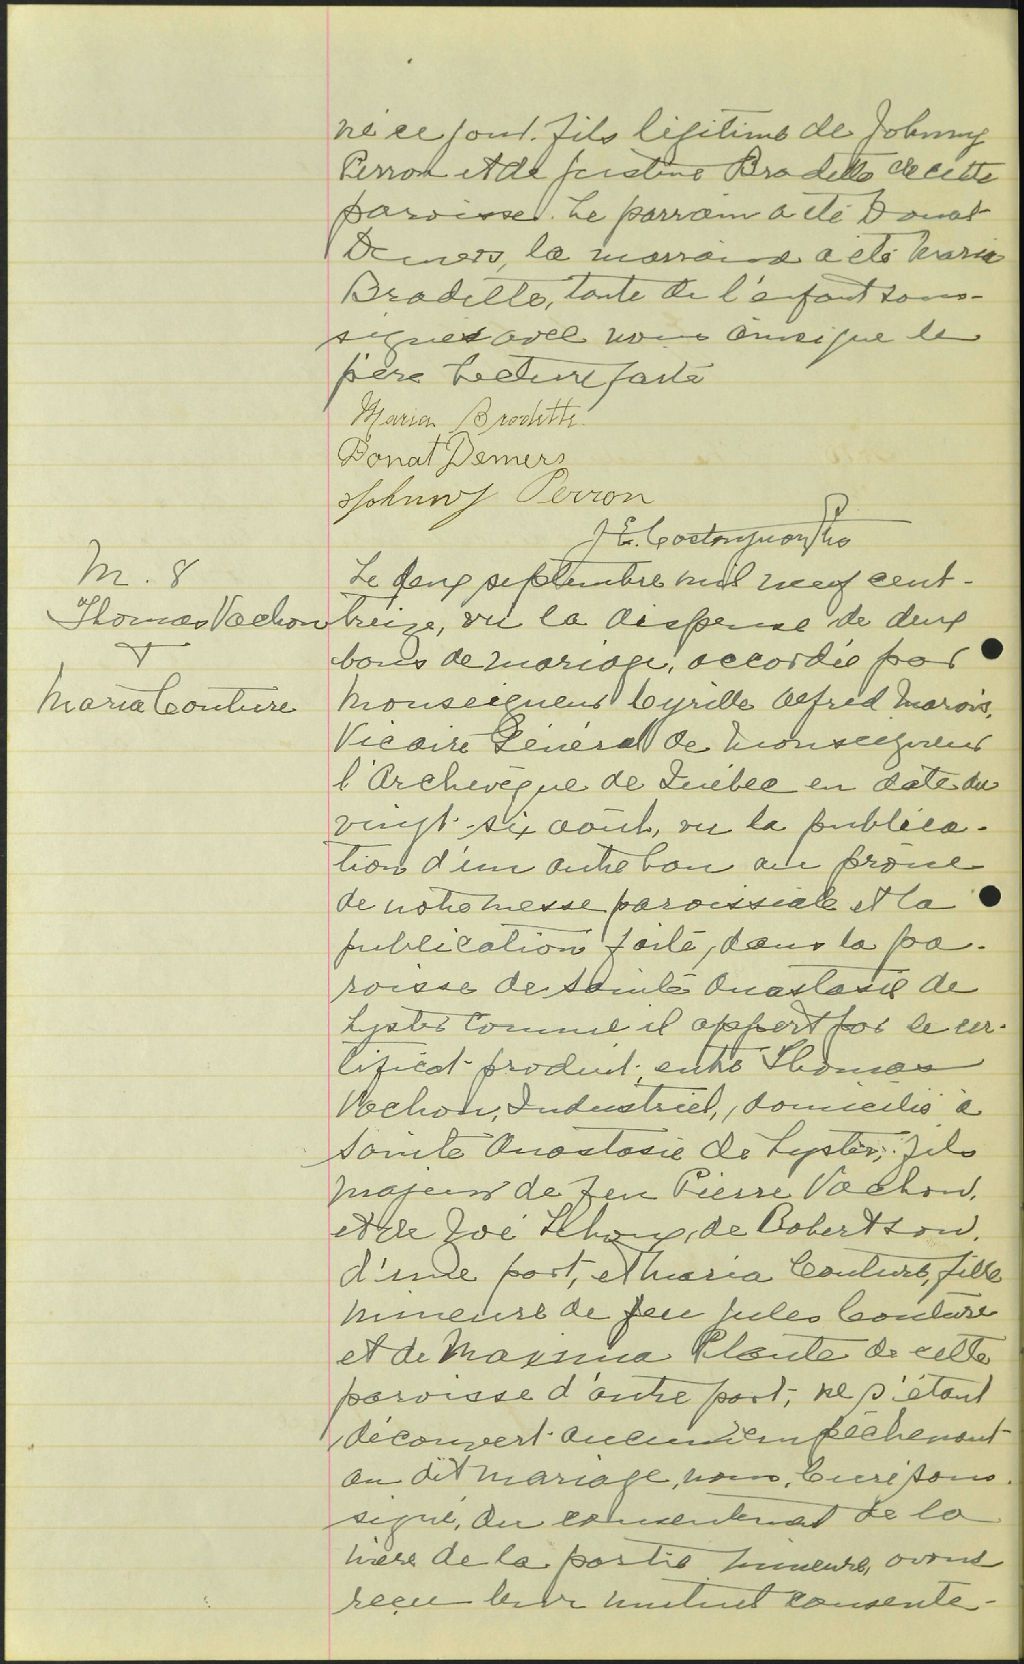 né ce jour. fils légitime de Johnny
Perron et de Justine Bradette de cette
paroisse. Le parrain a été Donat
Demers, la marraine a été Maria
Bradette, tante de l'enfant sous-
signés avec nous ainsi que le
père Lecture faite
Maria Bradette
Donat Demers
Johnny Perron
J. E. Castonguay Ptre
M. 8
Thomas Vachon
+
Maria Couture
Le deux septembre mil neuf cent-
treize, vu la dispense de deux
bans de mariage, accordée par
Monseigneur Cyrille Alfred Marois,
Vicaire Général de Monseigneur
l'Archevêque de Québec en date du
vingt-six août, vu la publica-
tion d'un autre ban au prône
de notre messe paroissiale et la
publication faite, dans la pa-
roisse de Sainte Anastasie de
Lyster comme il appert par le cer-
tificat produit, entre Thomas
Vachon, Industriel, domicilié à
Sainte Anastasie de Lyster, fils
majeur de feu Pierre Vachon,
et de Zoé de Robertson,
d'une part, et Maria Couture, fille
mineure de feu Jules Couture
et de Maxima Plante de cette
paroisse d'autre part; ne s'étant
découvert aucun empêchement
au dit mariage, nous, Curé sous-
signé, du consentement de la
mère de la partie mineure, avons
reçu leur mutuel consente-